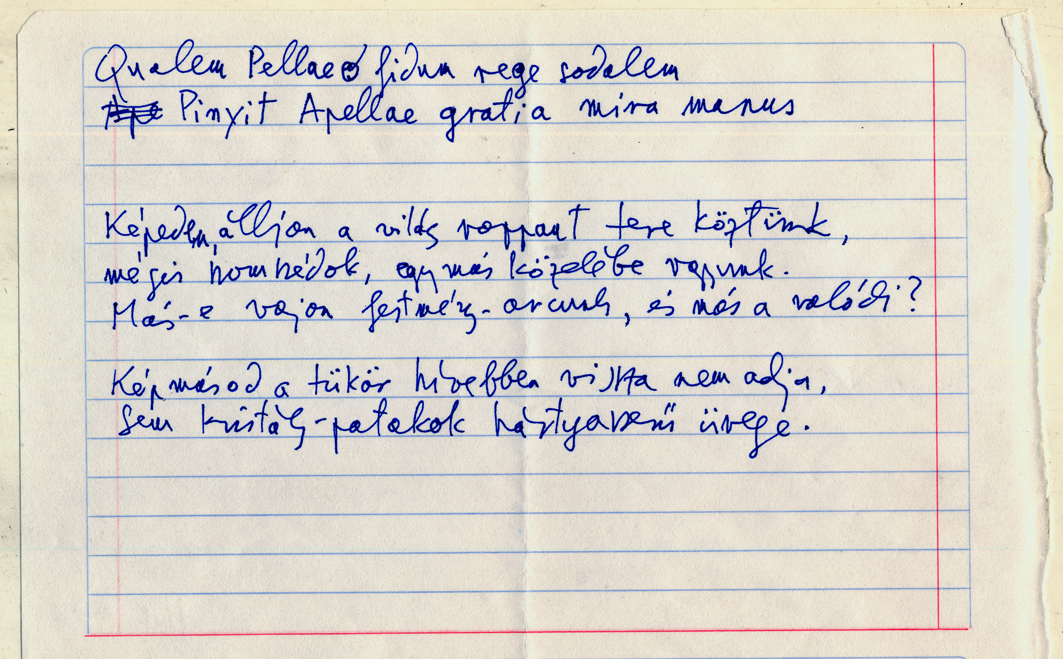 Qualem Pellaeo fidum rege sodalem
Ape Pinxit Apellae gratia mira manus
Képeden, álljon a világ roppant tere köztünk,
mégis szomszédok, egymás közelébe vagyunk.
Más-e vajon festmény-arcunk, és más a valódi?
Képmásod a tükör hívebben vissza nem adja,
Sem kristály-patakok hártyaszerű üvege.